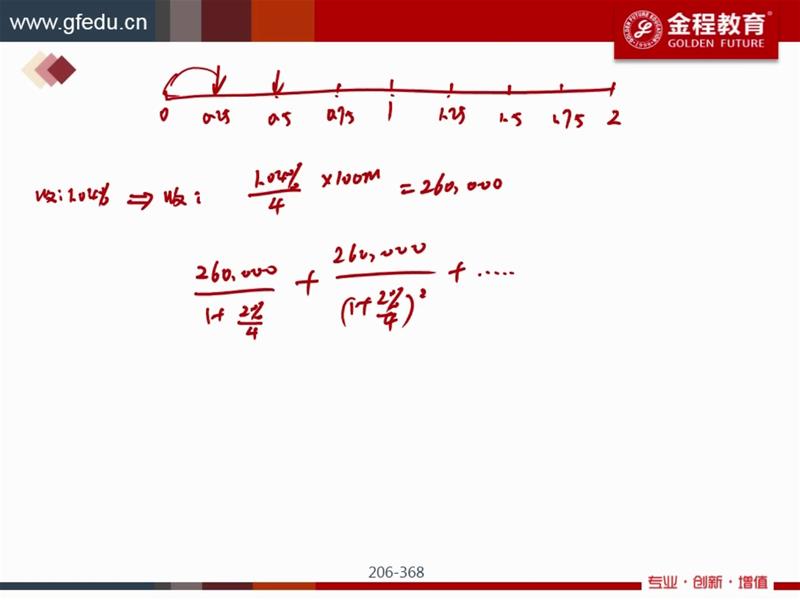 www.gfedu.cn
金程教育
GOLDEN FUTURE
0 0.25 0.5 0.75 1 1.25 1.5 1.75 2
收:1.04% ⇒ 收: 1.04%/4 ×100M = 260,000
260,000/(1+2%/4) + 260,000/(1+2%/4)² + .....
206-368
专业·创新·增值